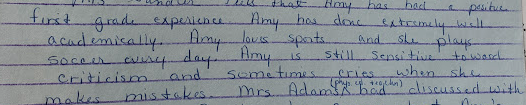 that Amy has had a positive
first grade experience Amy has done extremely well
academically. Amy lovs sports and she plays
soccer every day. Amy is still sensitive toward
criticism and sometimes cries when she
makes mistakes. Mrs Adams had discussed with